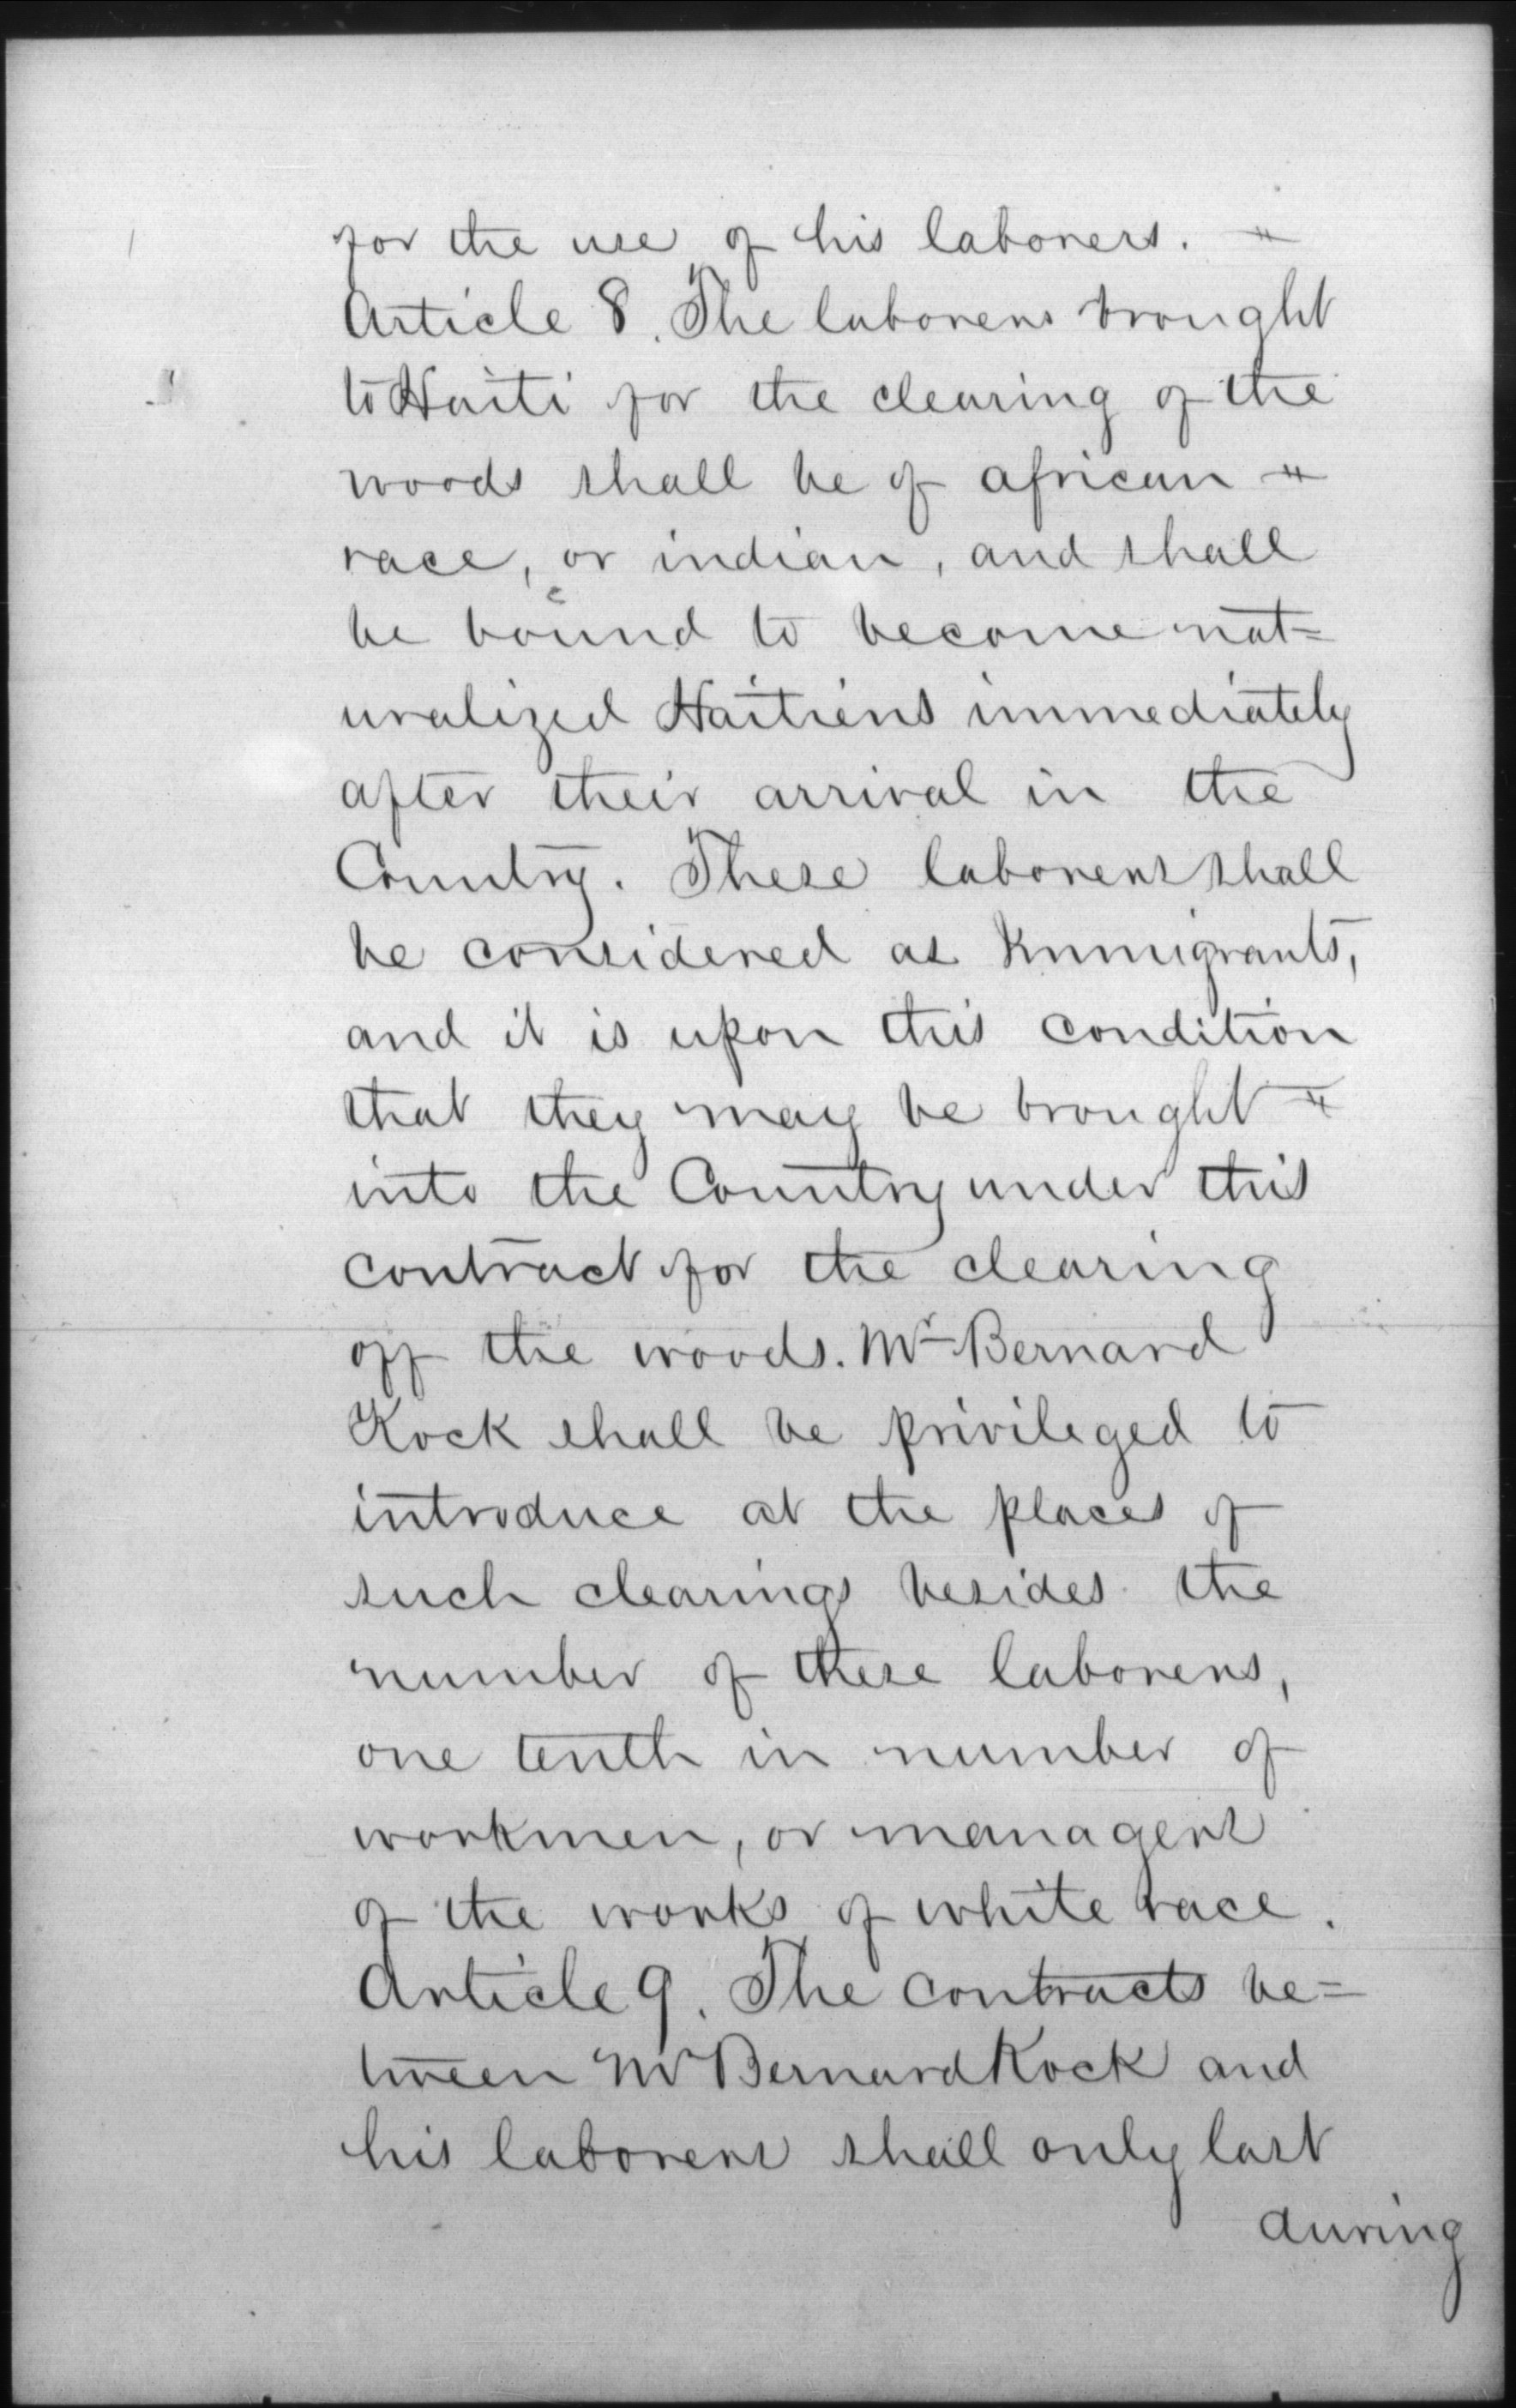 for the use of his laborers. =
Article 8. The laborers brought
to Haiti for the clearing of the
woods shall be of african =
race, or indian, and shall
be bound to become nat=
uralized Haïtiens immediately
after their arrival in the
Country. These laborers shall
be considered as Immigrants,
and it is upon this condition
that they may be brought =
into the Country under this
contract for the clearing
off the woods. Mr Bernard
Kock shall be privileged to
introduce at the places of
such clearings besides the
number of these laborers,
one tenth in number of
workmen, or managers
of the works of white race.
Article 9. The contracts be=
tween Mr Bernard Kock and
his laborers shall only last
during